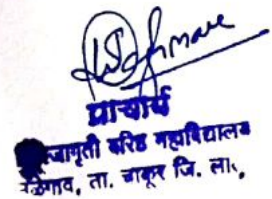 प्राचार्य
जागृती वरिष्ठ महाविद्यालय
ता. चाकूर जि. ला.